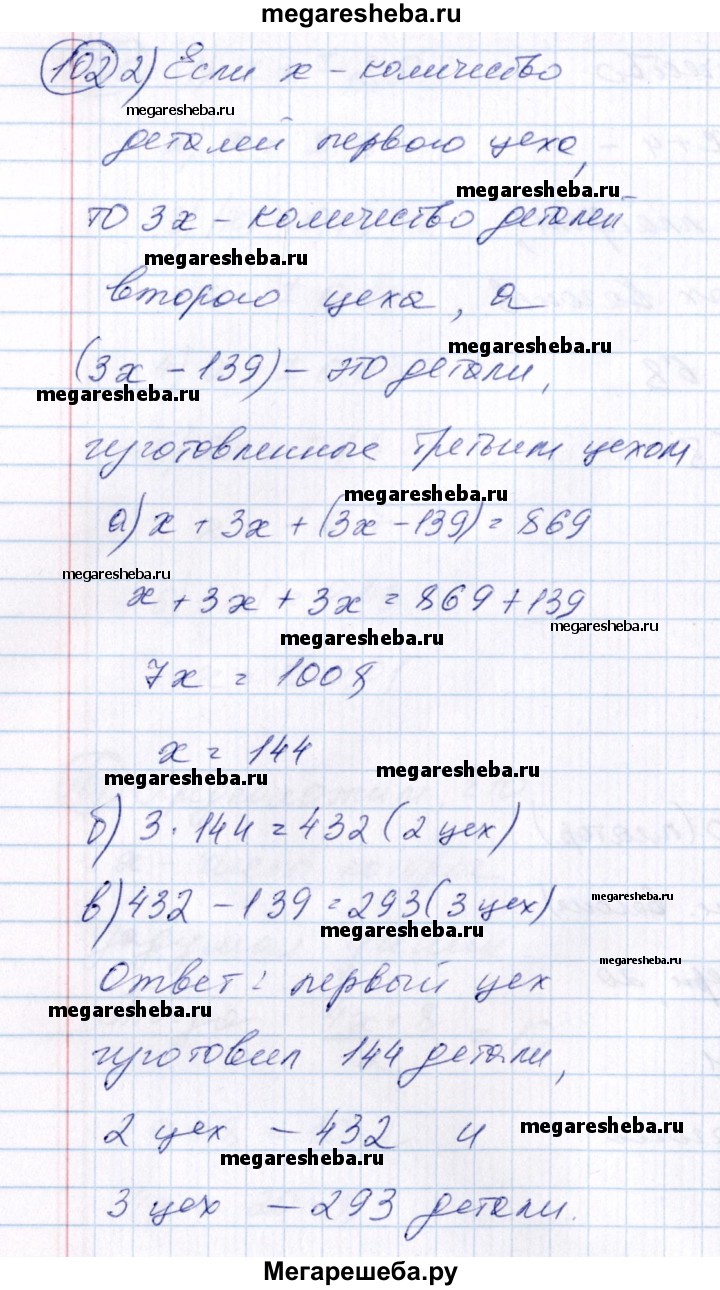 megaresheba.ru
102 2) Если х - количество
megaresheba.ru
деталей первого цеха,
megaresheba.ru
то 3х - количество деталей
megaresheba.ru
второго цеха, а
megaresheba.ru
(3х - 139) - это детали,
megaresheba.ru
изготовленные третьим цехом
megaresheba.ru
а) х + 3х + (3х - 139) = 869
megaresheba.ru
х + 3х + 3х = 869 + 139
megaresheba.ru
megaresheba.ru
7х = 1008
х = 144
megaresheba.ru
megaresheba.ru
б) 3 · 144 = 432 (2 цех)
в) 432 - 139 = 293 (3 цех)
megaresheba.ru
megaresheba.ru
megaresheba.ru
Ответ: первый цех
megaresheba.ru
изготовил 144 детали,
2 цех - 432 и
megaresheba.ru
megaresheba.ru
3 цех - 293 детали.
Мегарешеба.ру